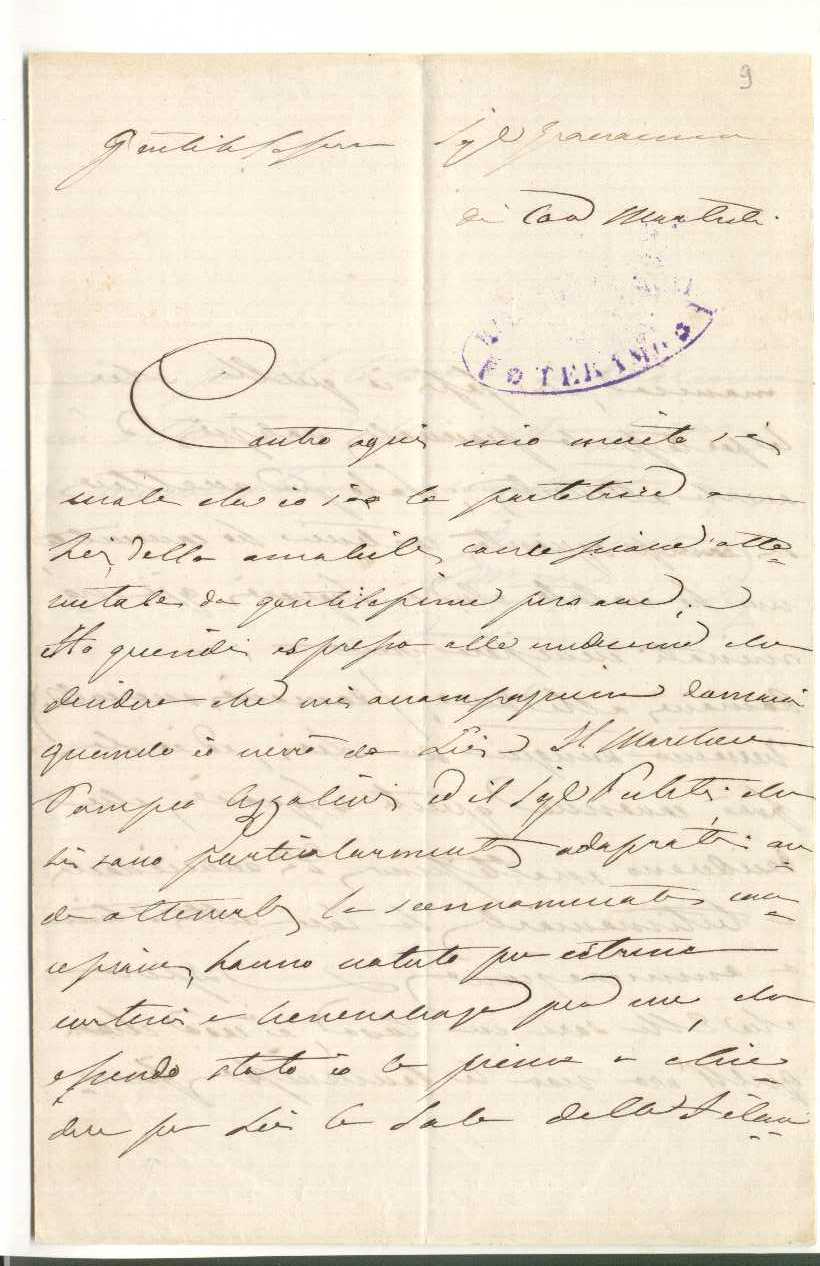 9
Gentilissima Sig.a Giovannina
di Casa
TERAMO
Contro ogni mio merito si
vuole che io sia la portatrice a
Lei, della amabile concessione otte=
nutale da gentilissime persone;
Ho quindi espresso alle medesime che
desidero che mi accompagnino domani
quando io verrò da Lei. Il Marchese
Pompeo Azzolini ed il Sig.e che
si sono particolarmente adoprati on=
de ottenerle la sunnominata con=
cessione, hanno voluto per estrema
cortesia e benevolenza per me, che
essendo stata io la prima a chie=
dere per Lei la Sala della Filar=